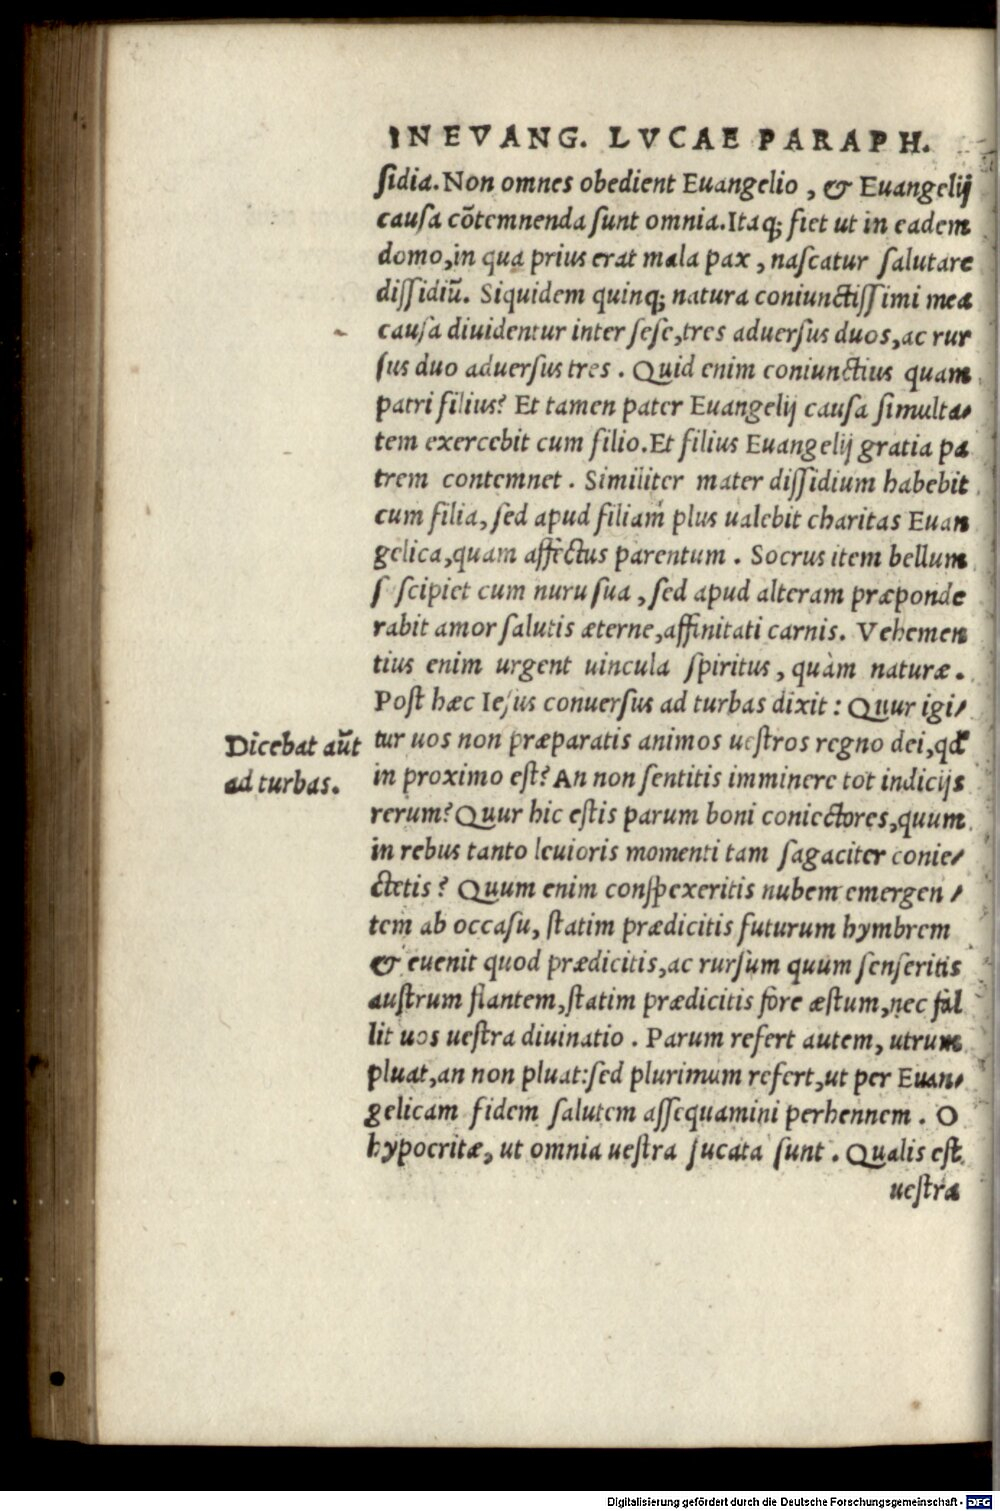 IN EVANG. LVCAE PARAPH.
sidia. Non omnes obedient Euangelio, & Euangelij
causa cõtemnenda sunt omnia. Itaq; fiet ut in eadem
domo, in qua prius erat mala pax, nascatur salutare
dissidiũ. Siquidem quinq; natura coniunctissimi mea
causa diuidentur inter sese, tres aduersus duos, ac rur
sus duo aduersus tres. Quid enim coniunctius quam
patri filius? Et tamen pater Euangelij causa simulta-
tem exercebit cum filio. Et filius Euangelij gratia pa
trem contemnet. Similiter mater dissidium habebit
cum filia, sed apud filiam plus ualebit charitas Euan
gelica, quam affectus parentum. Socrus item bellum
s scipiet cum nuru sua, sed apud alteram præponde
rabit amor salutis æterne, affinitati carnis. Vehemen
tius enim urgent uincula spiritus, quàm naturæ.
Post hæc Iesus conuersus ad turbas dixit: Quur igi-
Dicebat aũt
ad turbas.
tur uos non præparatis animos uestros regno dei, qđ
in proximo est? An non sentitis imminere tot indicijs
rerum? Quur hic estis parum boni coniectores, quum
in rebus tanto leuioris momenti tam sagaciter conie-
ctetis? Quum enim conspexeritis nubem emergen-
tem ab occasu, statim prædicitis futurum hymbrem
& euenit quod prædicitis, ac rursum quum senseritis
austrum flantem, statim prædicitis fore æstum, nec fal
lit uos uestra diuinatio. Parum refert autem, utrum
pluat, an non pluat: sed plurimum refert, ut per Euan-
gelicam fidem salutem assequamini perhennem. O
hypocritæ, ut omnia uestra fucata sunt. Qualis est
uestra
Digitalisierung gefördert durch die Deutsche Forschungsgemeinschaft - DFG